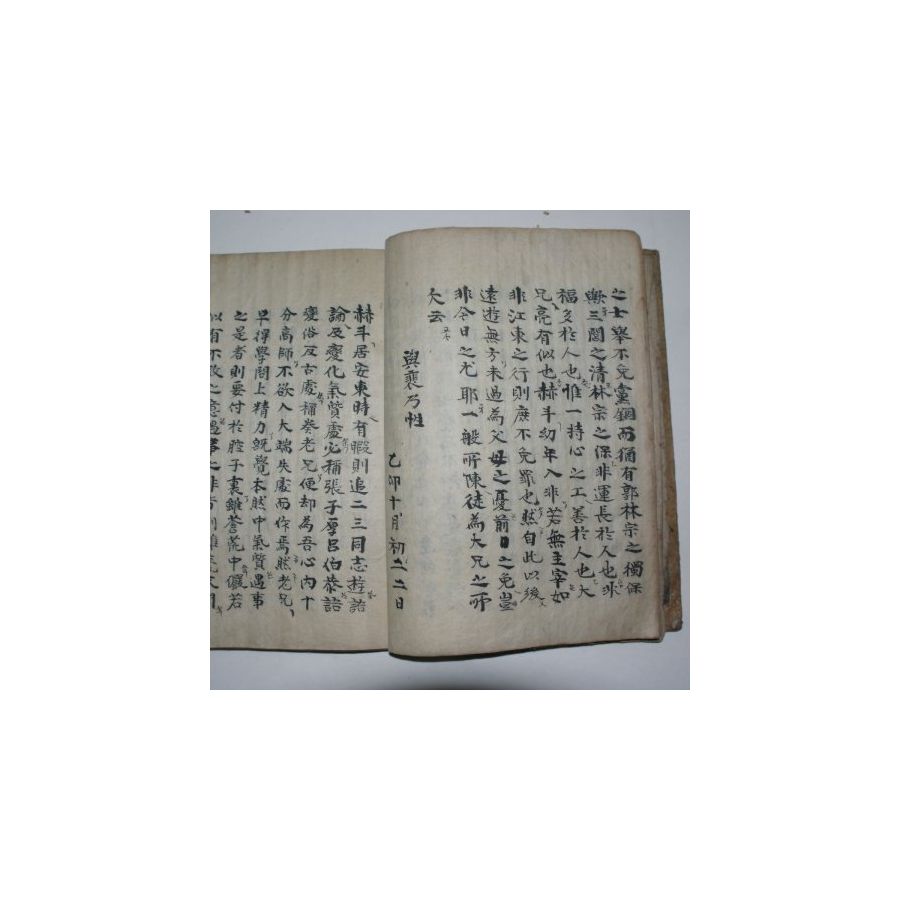 之士舉不免黨錮而猶有郭林宗之獨保
與三閭之清林宗之保非運長於人也非
福多於人也惟一持心之工善於人也大
兄亮有似也赫斗幼年入非若無主宰如
非江東之行則庶不免罪也然自此以後
遠遊無方未過為父母之憂前日之免豈
非今日之尤耶一般所陳徒為大兄之所
大云
與裵乃性
乙卯十月初二二日
赫斗居安東時有暇則追二三同志遊語
論及變化氣質處必稱張子厚呂伯恭語
變俗反古處稱癸老兄便却為吾心內十
分高師不欲入大端失處而作焉然老兄
早得學問上精力旣覺本然中氣質遇事
之是者則要付於腔子裏雖蒼荒中儼若
似有不改之意遇事之非者則雖